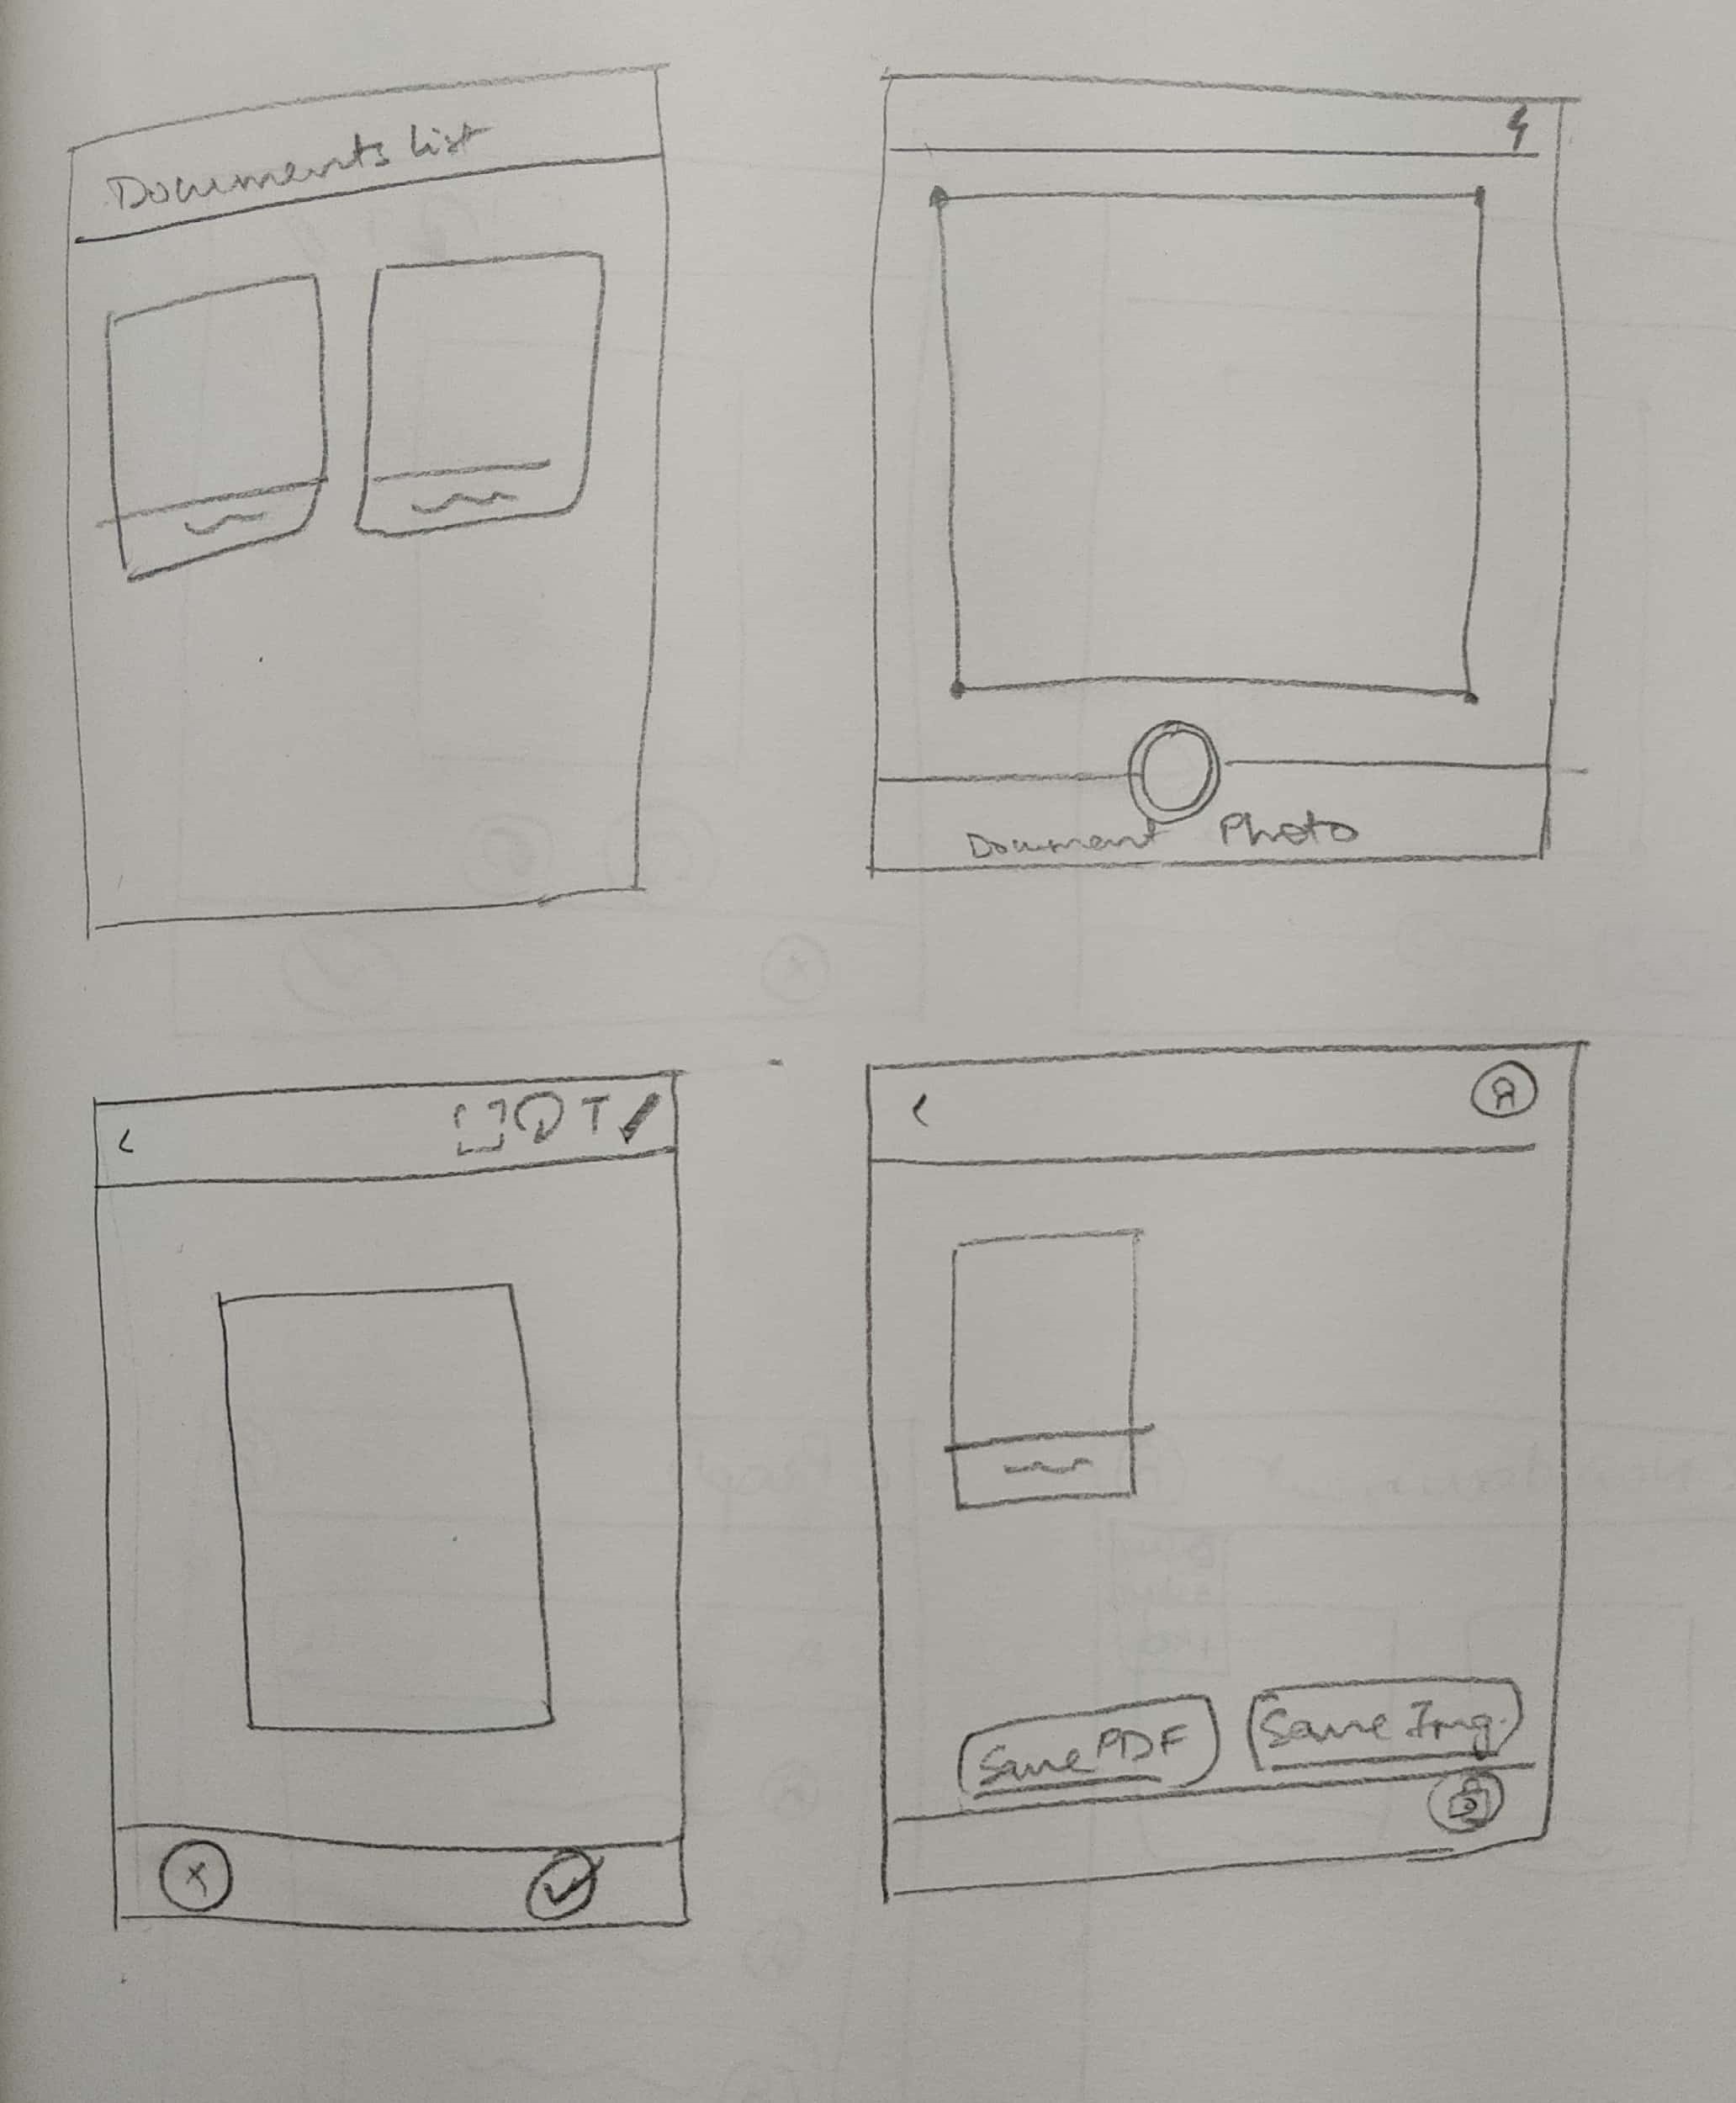 Documents list
Document Photo
T
Save PDF
Save Img.